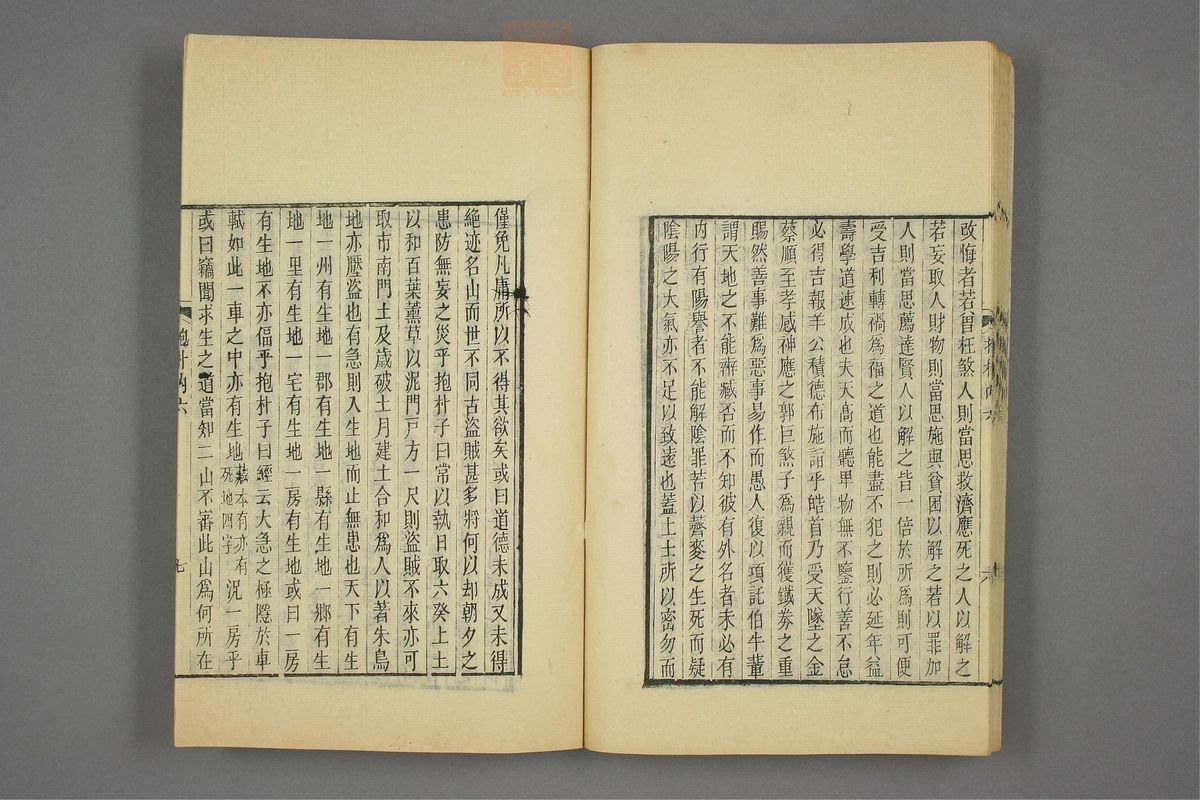 改悔者若曾枉煞人則當思救濟應死之人以解之
若妄取人財物則當思施與貧困以解之若以罪加
人則當思薦達賢人以解之皆一倍於所爲則可便
受吉利轉禍爲福之道也能盡不犯之則必延年益
壽學道速成也夫天高而聽卑物無不鑒行善不怠
必得吉報羊公積德布施詣乎皓首乃受天墜之金
蔡順至孝感神應之郭巨煞子爲親而獲鐵券之重
賜然善事難爲惡事易作而愚人復以項託伯牛輩
謂天地之不能辨臧否而不知彼有外名者未必有
内行有陽譽者不能解陰罪若以薺麥之生死而疑
陰陽之大氣亦不足以致遠也蓋上士所以密勿而
六
僅免凡庸所以不得其欲矣或曰道德未成又未得
絶迹名山而世不同古盜賊甚多將何以却朝夕之
患防無妄之災乎抱朴子曰常以執日取六癸上土
以和百葉薰草以泥門戸方一尺則盜賊不來亦可
取市南門土及歲破土月建土合和爲人以著朱鳥
地亦壓盜也有急則入生地而止無患也天下有生
地一州有生地一郡有生地一縣有生地一鄉有生
地一里有生地一宅有生地一房有生地或曰一房
有生地不亦偪乎抱朴子曰經云大急之極隱於車
軾如此一車之中亦有生地藏本有亦有死地四字況一房乎
或曰竊聞求生之道當知二山不審此山爲何所在
抱朴内六
七